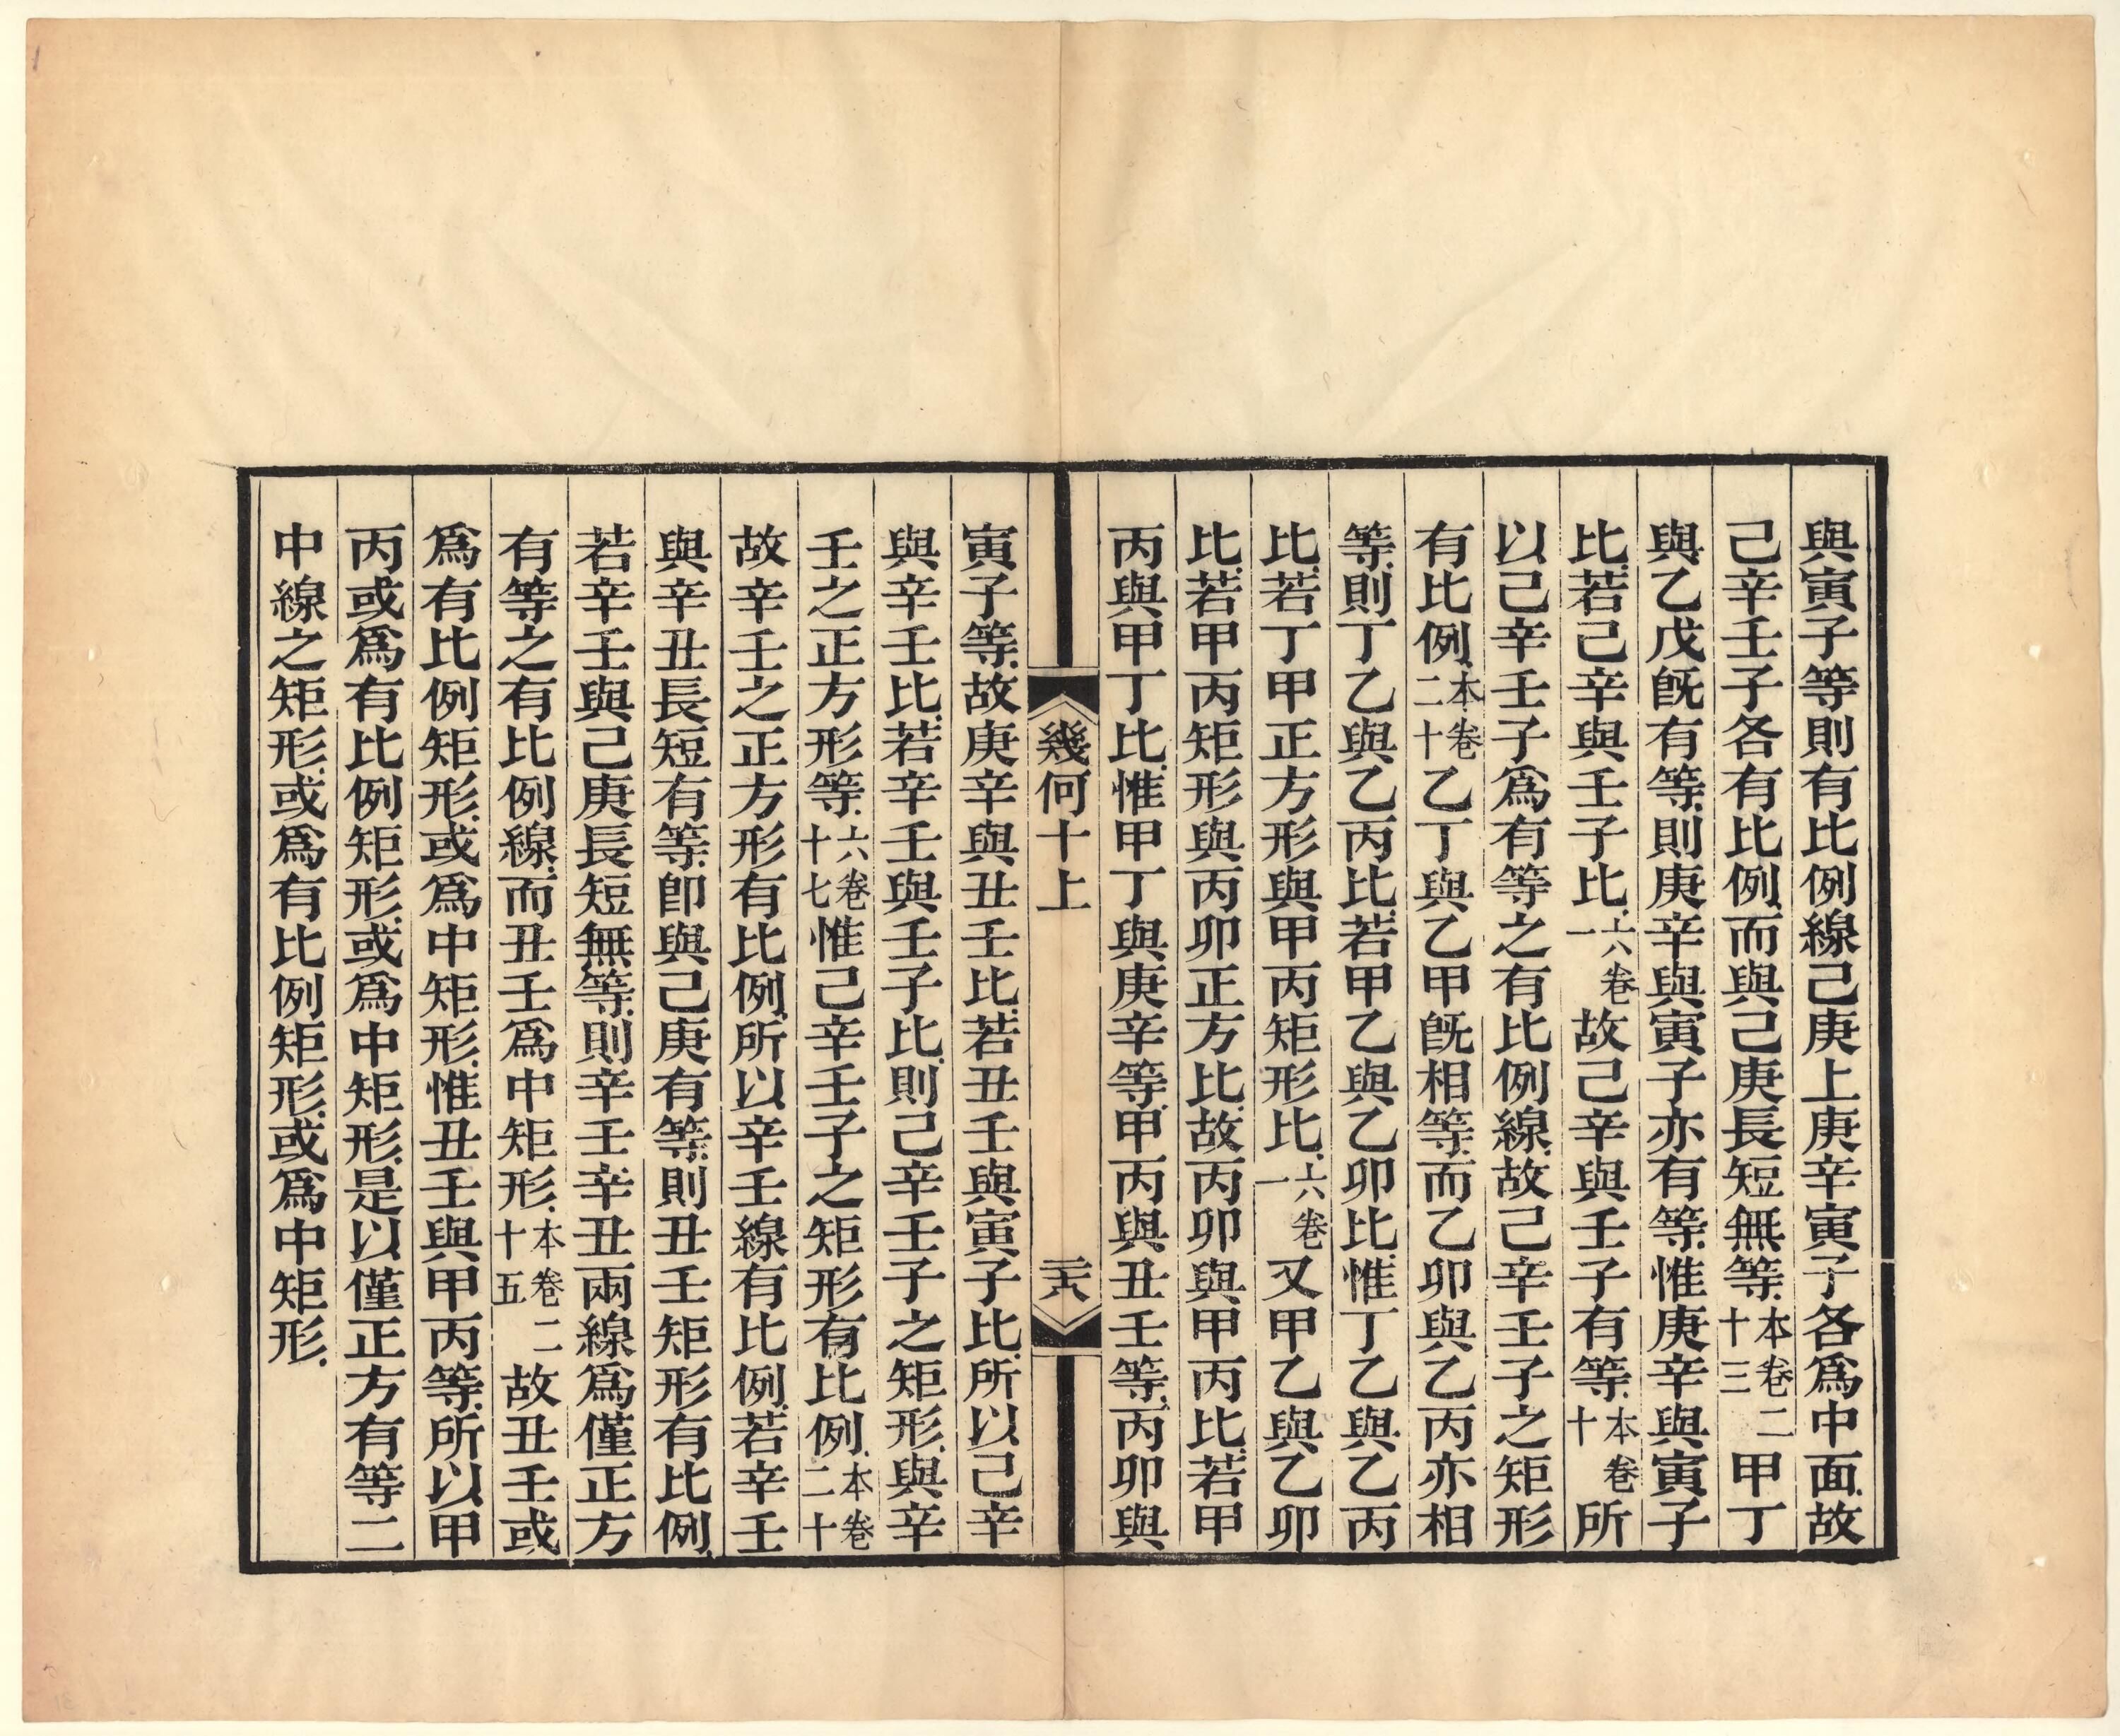 與寅子等則有比例線己庚上庚辛寅子各爲中面故
己辛壬子各有比例而與己庚長短無等本卷二十三甲丁
與乙戊旣有等則庚辛與寅子亦有等惟庚辛與寅子
比若己辛與壬子比六卷一故己辛與壬子有等本卷十所
以己辛壬子爲有等之有比例線故己辛壬子之矩形
有比例本卷二十乙丁與乙甲旣相等而乙卯與乙丙亦相
等則丁乙與乙丙比若甲乙與乙卯比惟丁乙與乙丙
比若丁甲正方形與甲丙矩形比六卷一又甲乙與乙卯
比若甲丙矩形與丙卯正方比故丙卯與甲丙比若甲
丙與甲丁比惟甲丁與庚辛等甲丙與丑壬等丙卯與
幾何十上 二六
寅子等故庚辛與丑壬比若丑壬與寅子比所以己辛
與辛壬比若辛壬與壬子比則己辛壬子之矩形與辛
壬之正方形等六卷十七惟己辛壬子之矩形有比例本卷二十
故辛壬之正方形有比例所以辛壬線有比例若辛壬
與辛丑長短有等卽與己庚有等則丑壬矩形有比例
若辛壬與己庚長短無等則辛壬辛丑兩線爲僅正方
有等之有比例線而丑壬爲中矩形本卷二十五故丑壬或
爲有比例矩形或爲中矩形惟丑壬與甲丙等所以甲
丙或爲有比例矩形或爲中矩形是以僅正方有等二
中線之矩形或爲有比例矩形或爲中矩形